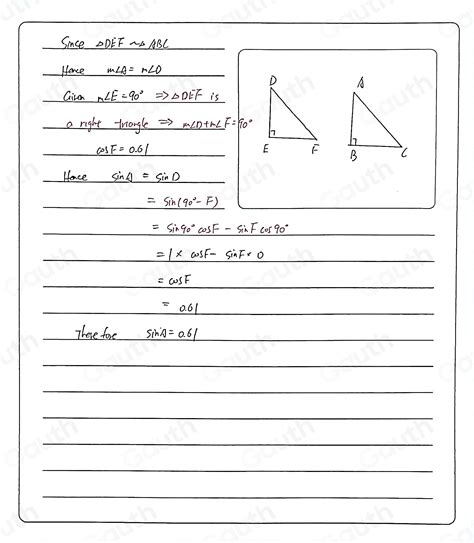 Since △DEF ~ △ABC
Hence m∠A = m∠D
Given m∠E = 90° ⇒ △DEF is
a right triangle ⇒ m∠D+m∠F = 90°
cosF = 0.61
Hence sinA = sinD
= sin(90° - F)
= sin90° cosF - sinF cos90°
= 1 × cosF - sinF × 0
= cosF
= 0.61
Therefore sinA = 0.61
D
A
E
F
B
C
Gauth